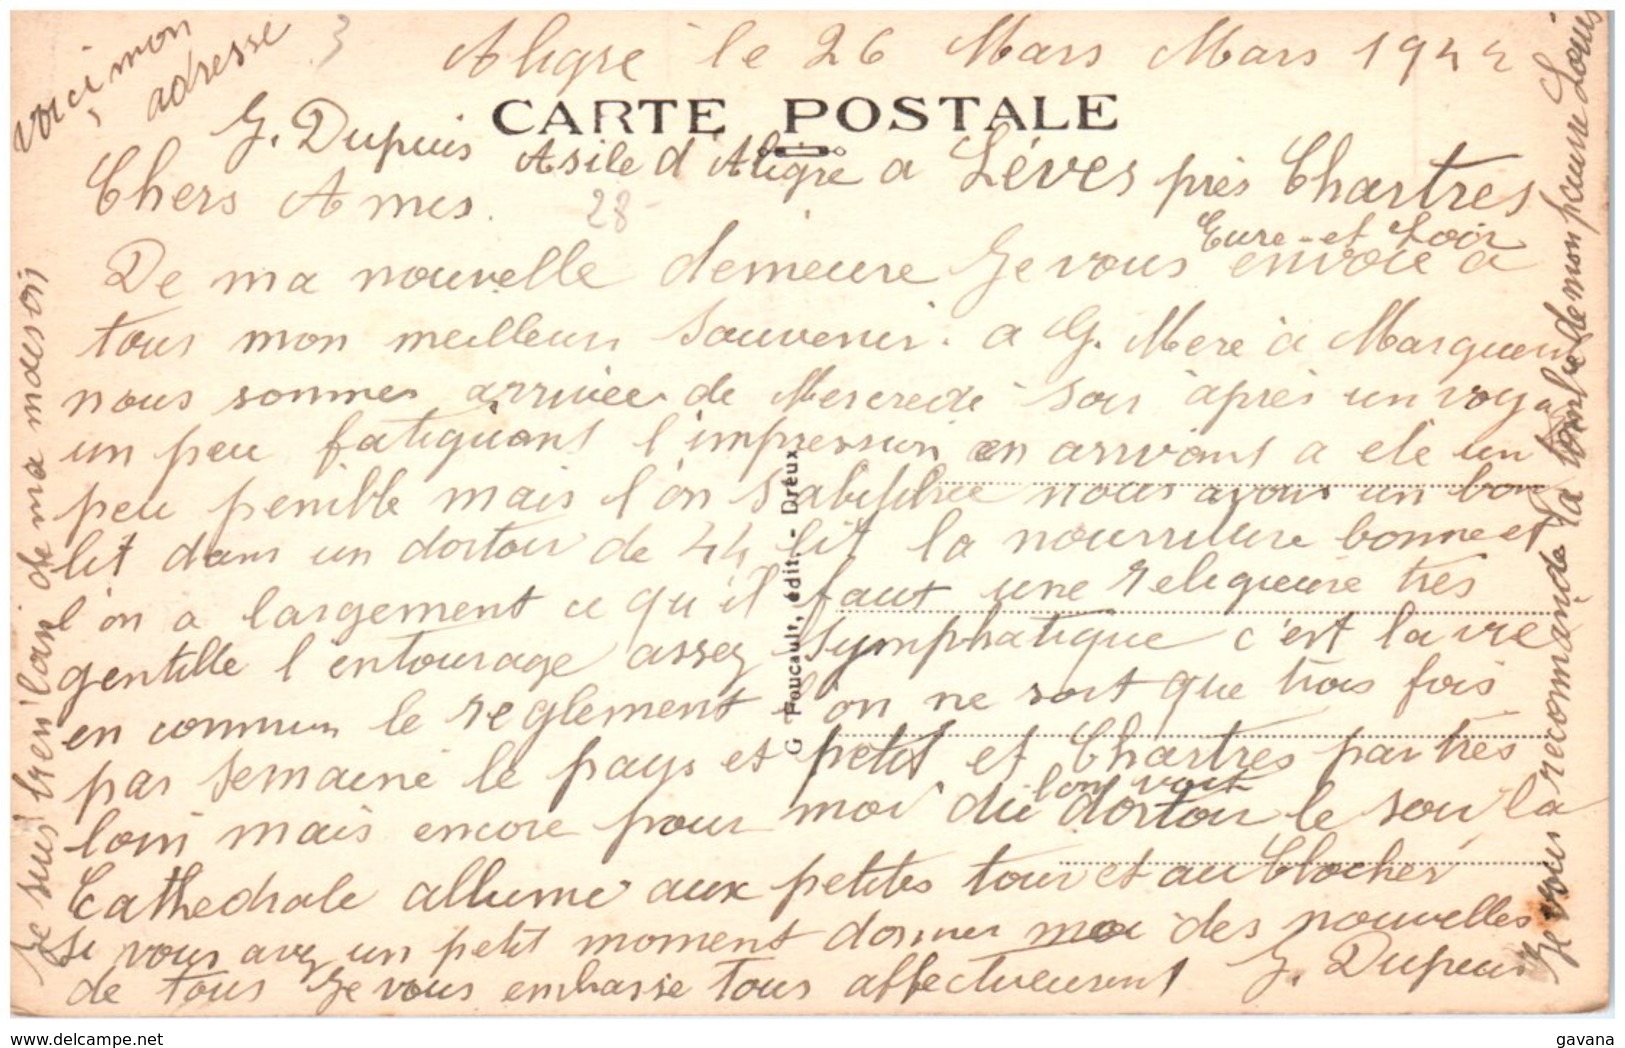 voici mon
adresse
Aligre le 26 Mars Mars 1944
CARTE POSTALE
G. Dupuis Asile d'Aligre a Léves près Chartres
Eure-et Loir
Chers Amis.
28
De ma nouvelle demeure Je vous envoie a
tous mon meilleur souvenir. a G. Mere a
nous sommes arrivées de Mercredi soir après un voya
un peu fatiguant l'impression en arrivant a eté un
peu penible mais l'on nous avons un bon
lit dans un dortoir de 44 lit la nourriture bonne et
l'on a largement ce qu'il faut une religieuse très
gentille l'entourage assez symphatique c'est la vie
en commun le reglement l'on ne sort que trois fois
par semaine le pays et petit et Chartres pas très
loin mais encore pour moi du dortoir le soir la
l'on voit
Cathedrale allume aux petites tour et au Clocher
si vous avez un petit moment donner moi des nouvelles
de tous Je vous embrasse tous affectueusent G. Dupuis
Je suis bien loin de ma maison
Je vous recommande la tombe de mon pauvre Louis
G Foucault, édit. - Dreux
delcampe.net
gavana